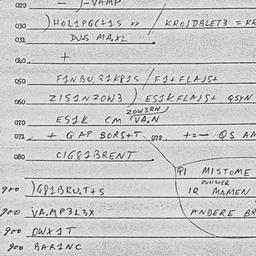 020 — )-VAMP
030 )HOL1PGC+1S » / KROJDBLET3 = KR
031 DUS MA.XL
040. +
050 F1NBU,R1K81S / F1+FLAJS+
060 Z1S1NZOW3 ) ES1KFLAJS+ QSYN
ZOW3RN)
070 ES1K CM VA.N
071 + QAP BORS+T 072 +=— QS AM
080 C1G81BRENT
Q1 MISTOME
900 )G81BRU.T+S 1Q MAMEN
900 VA.MP3L3X ANDERE BR
900 DWX1T
900 BAR1NC